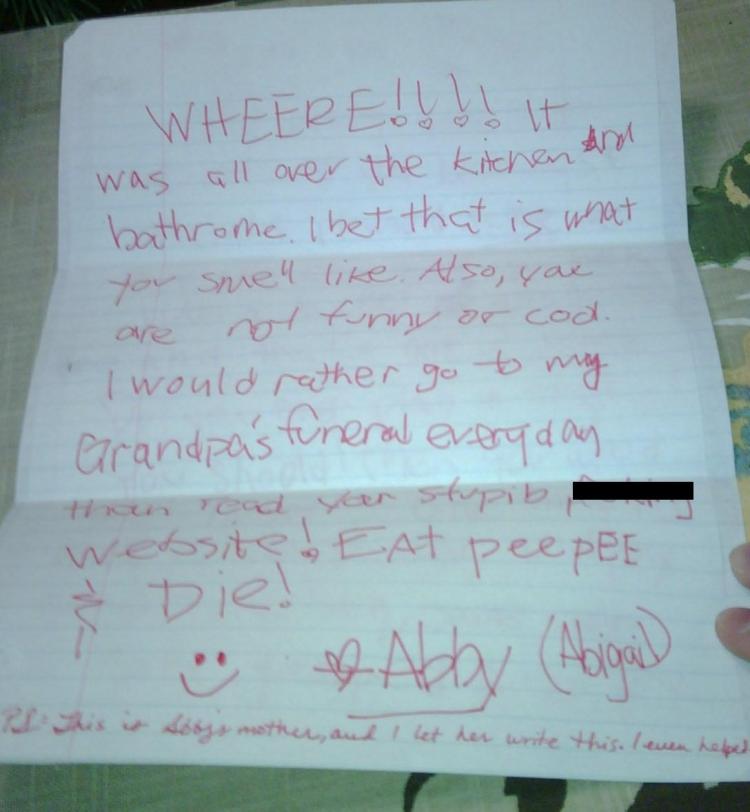 WHEERE!!!! It
was all over the kitchen And
bathrome. I bet that is what
yor smell like. Also, yae
are not funny or cool.
I would rather go to my
Grandpa's funeral everyday
than read yar stupib
website! EAt peepEE
& Die!
Abby (Abigail)
P.S: This is Abby's mother, and I let her write this. I even helped